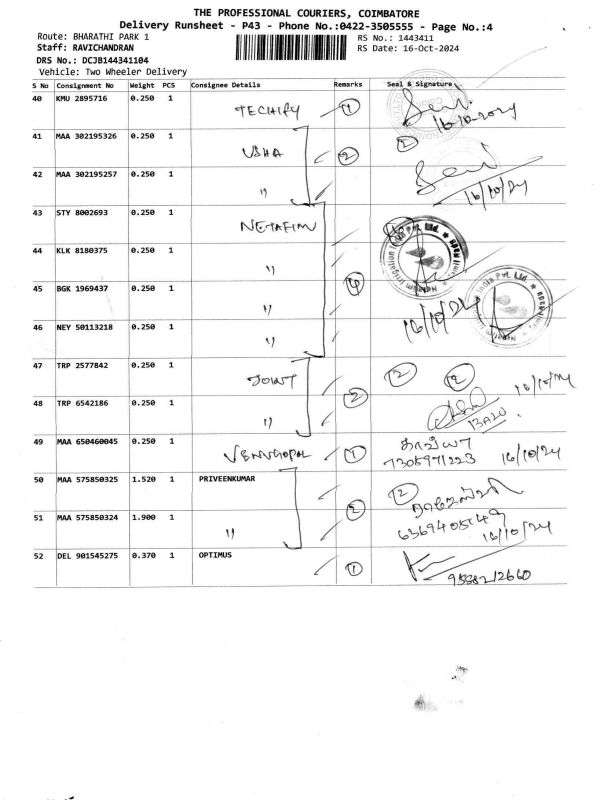 THE PROFESSIONAL COURIERS, COIMBATORE
Delivery Runsheet - P43 - Phone No.:0422-3505555 - Page No.:4
Route: BHARATHI PARK 1
RS No.: 1443411
Staff: RAVICHANDRAN
RS Date: 16-Oct-2024
DRS No.: DCJB144341104
Vehicle: Two Wheeler Delivery
S No Consignment No Weight PCS Consignee Details Remarks Seal & Signature
40 KMU 2895716 0.250 1 TECHIFY 1
16-10-2024
41 MAA 302195326 0.250 1 USHA 2 2
42 MAA 302195257 0.250 1 " 16/10/24
43 STY 8002693 0.250 1 NETAFIM
44 KLK 8180375 0.250 1 "
45 BGK 1969437 0.250 1 " 4
46 NEY 50113218 0.250 1 " 16/10/24
47 TRP 2577842 0.250 1 JOINT 2 2 2 16/10/24
48 TRP 6542186 0.250 1 "
49 MAA 650460045 0.250 1 VENUGOPAL 1 காவ்யா
7305971223 16/10/24
50 MAA 575850325 1.520 1 PRIVEENKUMAR 2 2
51 MAA 575850324 1.900 1 "
16/10/24
52 DEL 901545275 0.370 1 OPTIMUS 1